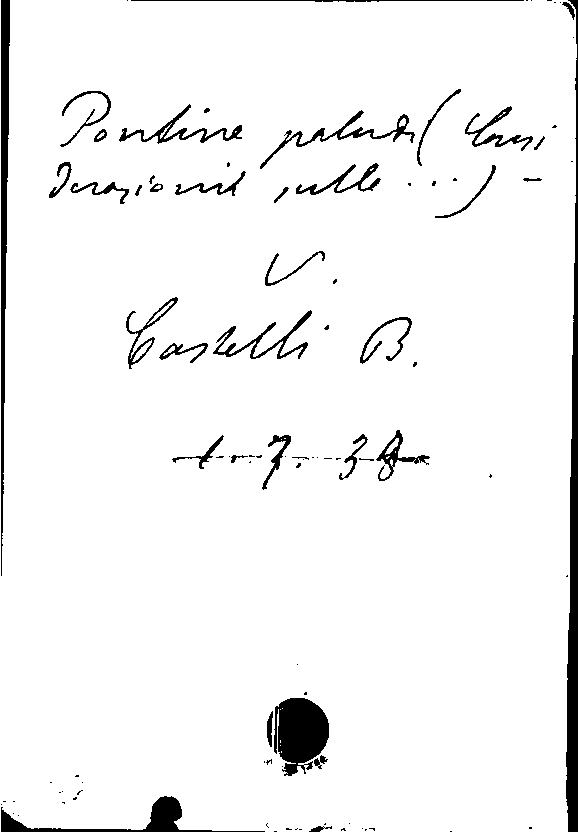 Pontine paludi (Consi
derazioni sulle ...) -
V.
Castelli B.
1.7.38